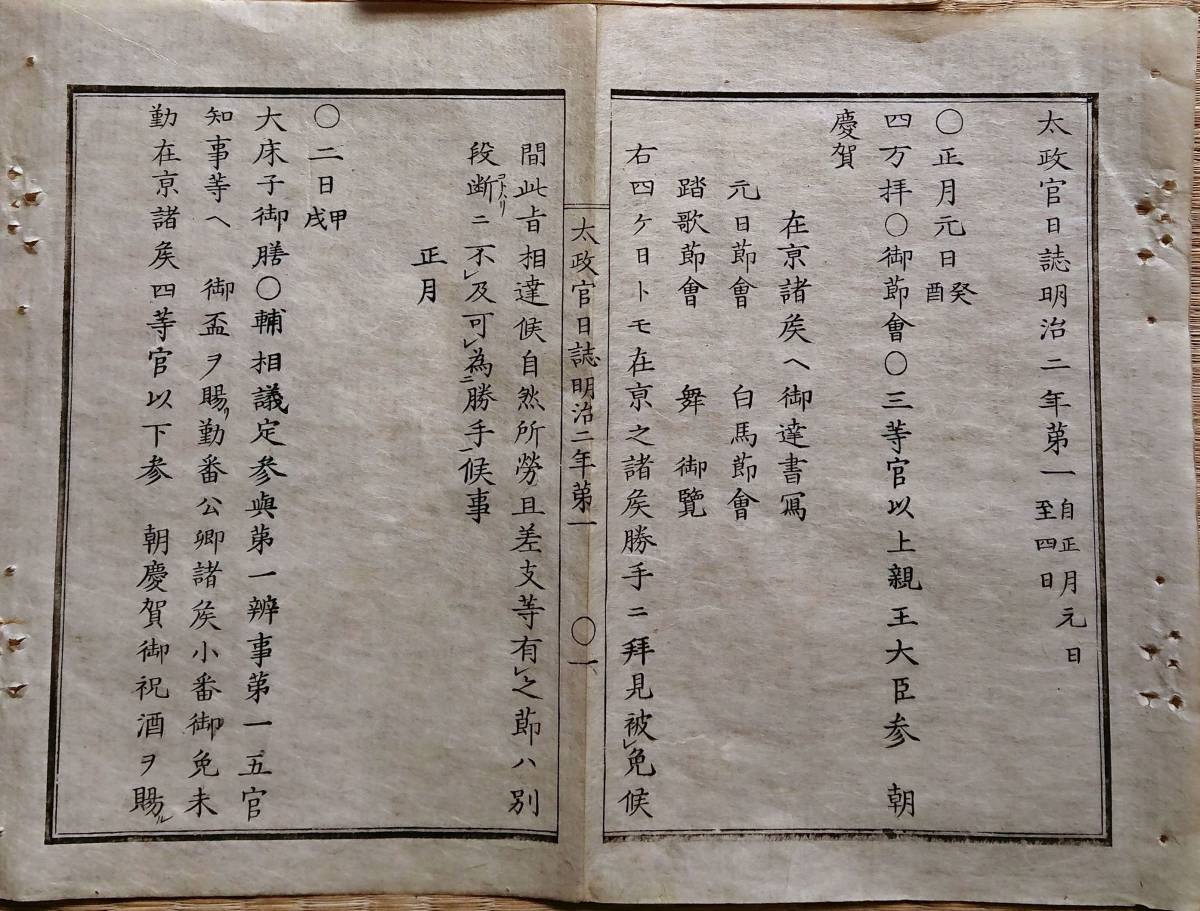 太政官日誌明治二年第一 自正月元日 至四日
〇正月元日 癸酉
四方拝〇御節會〇三等官以上親王大臣参　朝
慶賀
在京諸矦ヘ御達書寫
元日節會　白馬節會
踏歌節會　舞　御覽
右四ケ日トモ在京之諸矦勝手ニ拜見被レ免候
太政官日誌明治二年第一　〇一
間此旨相達候自然所勞且差支等有レ之節ハ別
段断コトハリニ不レ及可レ為二勝手一候事
正月
〇二日 甲戌
大床子御膳〇輔相議定参與第一辨事第一五官
知事等ヘ　御盃ヲ賜リ勤番公卿諸矦小番御免未
勤在京諸矦四等官以下参　朝慶賀御祝酒ヲ賜ル